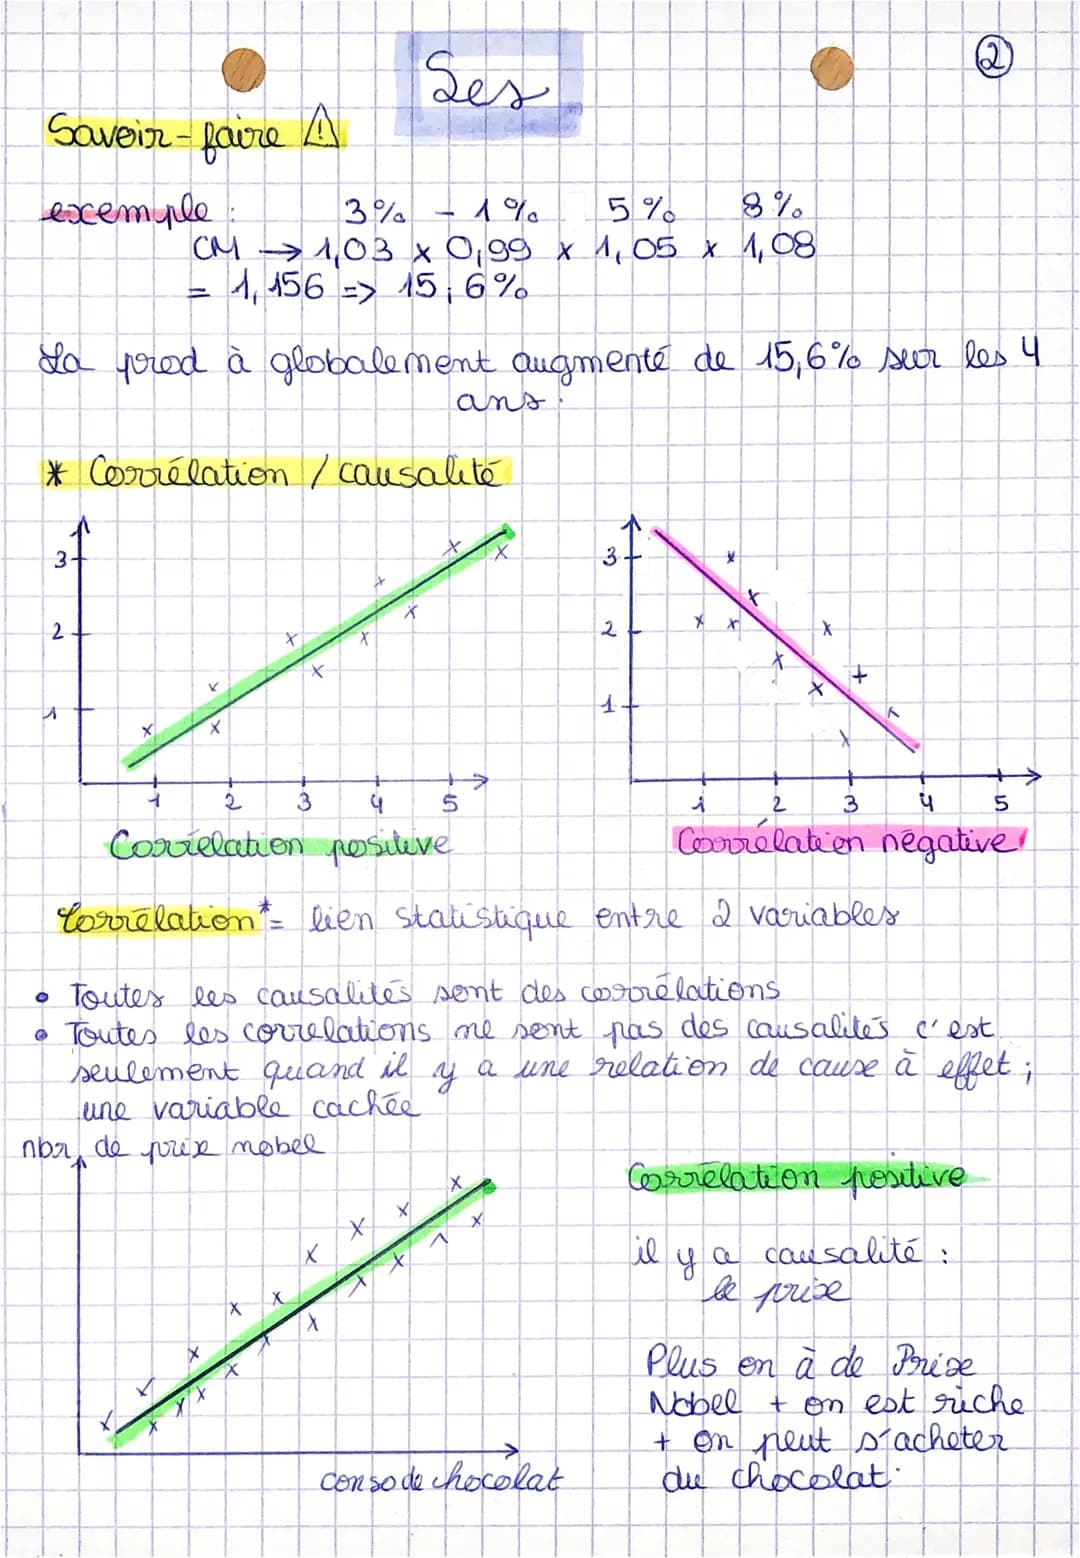 Ses
②
Savoir-faire ⚠
exemple : 3% - 1% 5% 8%
CM → 1,03 x 0,99 x 1,05 x 1,08
= 1,156 => 15,6%
La prod à globalement augmenté de 15,6% sur les 4
ans.
* Corrélation / causalité
3
2
1
1 2 3 4 5
Correlation positive
3
2
1
1 2 3 4 5
Corrélation négative
Corrélation* = lien statistique entre 2 variables
• Toutes les causalités sont des corrélations
• Toutes les correlations ne sont pas des causalités c'est
seulement quand il y a une relation de cause à effet ;
une variable cachée
nbr de prix nobel
conso de chocolat
Corrélation positive
il y a causalité :
le prix
Plus on à de Prix
Nobel + on est riche
+ on peut s'acheter
du chocolat.